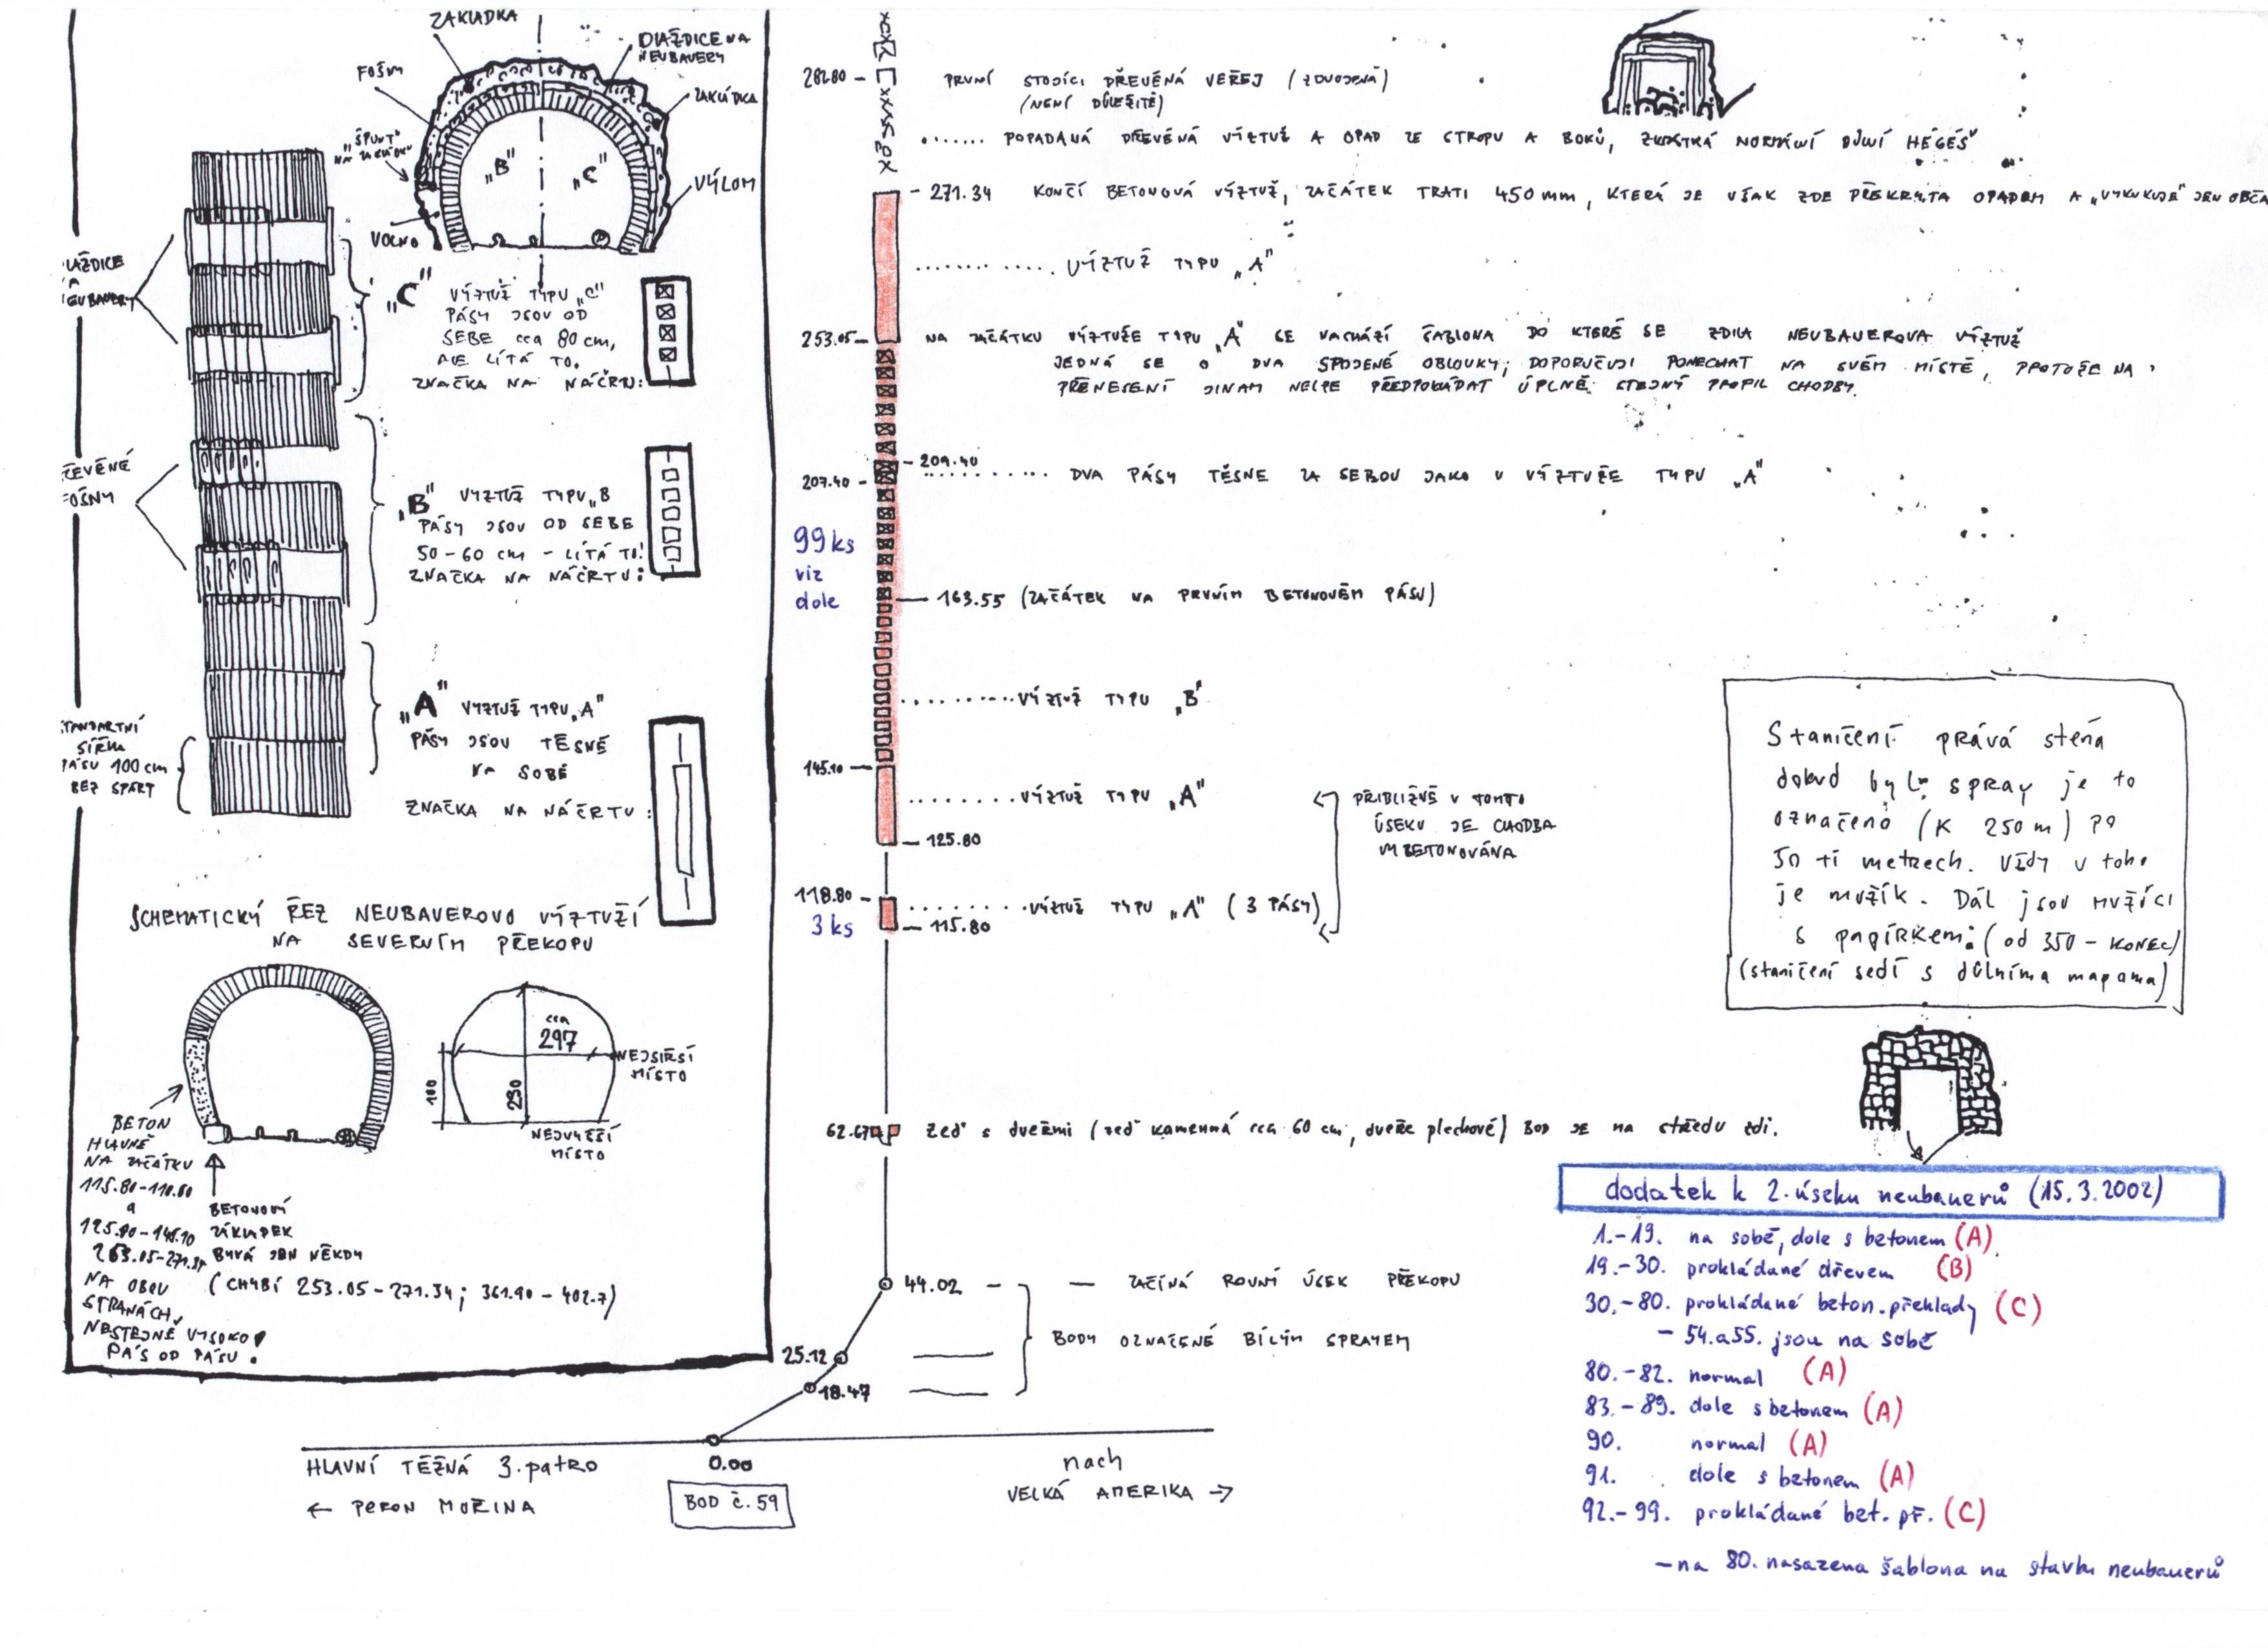 ZAKLÁDKA
DLAŽDICE NA
NEUBAVERY
FOŠNY
ZAKLÁDKA
„ŠPUNT“
NA ZAKLÁDKU
„B“
„C“
VÝLOM
VOLNO
LAŽDICE
„C“
VÝZTUŽ TYPU „C“
PÁSY JSOU OD
SEBE cca 80 cm,
ALE LÍTÁ TO.
ZNAČKA NA NÁČRTU:
„B“ VÝZTUŽ TYPU „B
PÁSY JSOU OD SEBE
50-60 cm - LÍTÁ TO!
ZNAČKA NA NÁČRTU:
ŘEVĚNÉ
OŠNY
„A“ VÝZTUŽ TYPU „A“
PÁSY JSOU TĚSNĚ
NA SOBĚ
ZNAČKA NA NÁČRTU:
TANDARTNÍ
ŠÍŘKA
PÁSU 100 cm
BEZ SPÁRY
SCHEMATICKÝ ŘEZ NEUBAVEROVO VÝZTUŽÍ
NA SEVERNÍM PŘEKOPU
cca
297
100
250
NEJŠIRŠÍ
MÍSTO
NEJVYŠŠÍ
MÍSTO
BETON
HLAVNĚ
NA ZAČÁTKU
a
125.80-145.10
NA OBOU
STRANÁCH,
NESTEJNĚ VYSOKO
PÁS OD PÁSU!
BETONOVÝ
ZÁKLADEK
BÝVÁ JEN NĚKDY
(CHYBÍ 253.05-271.34; 361.90-402.7)
282.80 PRVNÍ STOJÍCÍ DŘEVĚNÁ VEŘEJ (ZDVOJENÁ)
(NENÍ DŮLEŽITÉ)
....... POPADANÁ DŘEVĚNÁ VÝZTUŽ A OPAD ZE STROPU A BOKŮ, ZKRÁTKÁ NORMÁLNÍ DŮLNÍ HÉGÉŠ"
- 271.34 KONČÍ BETONOVÁ VÝZTUŽ, ZAČÁTEK TRATI 450 mm, KTERÁ JE VŠAK ZDE PŘEKRYTA OPADEM A „VYKUKUJE“ JEN OBČA
............. VÝZTUŽ TYPU „A“
253.05 NA ZAČÁTKU VÝZTUŽE TYPU „A“ SE NACHÁZÍ ŠABLONA DO KTERÉ SE ZDILA NEUBAUEROVA VÝZTUŽ
JEDNÁ SE O DVA SPOJENÉ OBLOUKY; DOPORUČUJI PONECHAT NA SVÉM MÍSTĚ, PROTOŽE NA
PŘENESENÍ JINAM NELZE PŘEDPOKLÁDAT ÚPLNĚ STEJNÝ PROFIL CHODBY.
209.40
207.40 ........... DVA PÁSY TĚSNE ZA SEBOU JAKO V VÝZTUŽE TYPU „A“
99 ks
viz
dole
163.55 (ZAČÁTEK NA PRVNÍM BETONOVÉM PÁSU)
..........VÝZTUŽ TYPU „B“
145.10
..........VÝZTUŽ TYPU „A“
125.80
PŘIBLIŽNĚ V TOMTO
ÚSEKU JE CHODBA
VYBETONOVÁNA
118.80
..........VÝZTUŽ TYPU „A“ (3 PÁSY)
3 ks
115.80
Staničení: pravá stěna
dokud byl spray je to
označeno (K 250 m) po
50 ti metrech. Vždy v toho
je mužík. Dál jsou mužíci
s papírkem: (od 350 - KONEC)
(staničení sedí s důlníma mapama)
62.67 zeď s dveřmi (zeď kamenná cca 60 cm, dveře plechové) BOD JE na středu zdi.
44.02 - — ZAČÍNÁ ROVNÝ ÚSEK PŘEKOPU
BODY OZNAČENÉ BÍLÝM SPRAYEM
25.12
18.47
HLAVNÍ TĚŽNÁ 3. patro
0.00
nach
← PERON MOŘINA
BOD č. 59
VELKÁ AMERIKA →
dodatek k 2. úseku neubauerů (15. 3. 2002)
1.-19. na sobě, dole s betonem (A)
19.-30. prokládané dřevem (B)
30.-80. prokládané beton. překlady (C)
- 54. a 55. jsou na sobě
80.-82. normal (A)
83.-89. dole s betonem (A)
90. normal (A)
91. dole s betonem (A)
92.-99. prokládané bet. př. (C)
- na 80. nasazena šablona na stavbu neubauerů